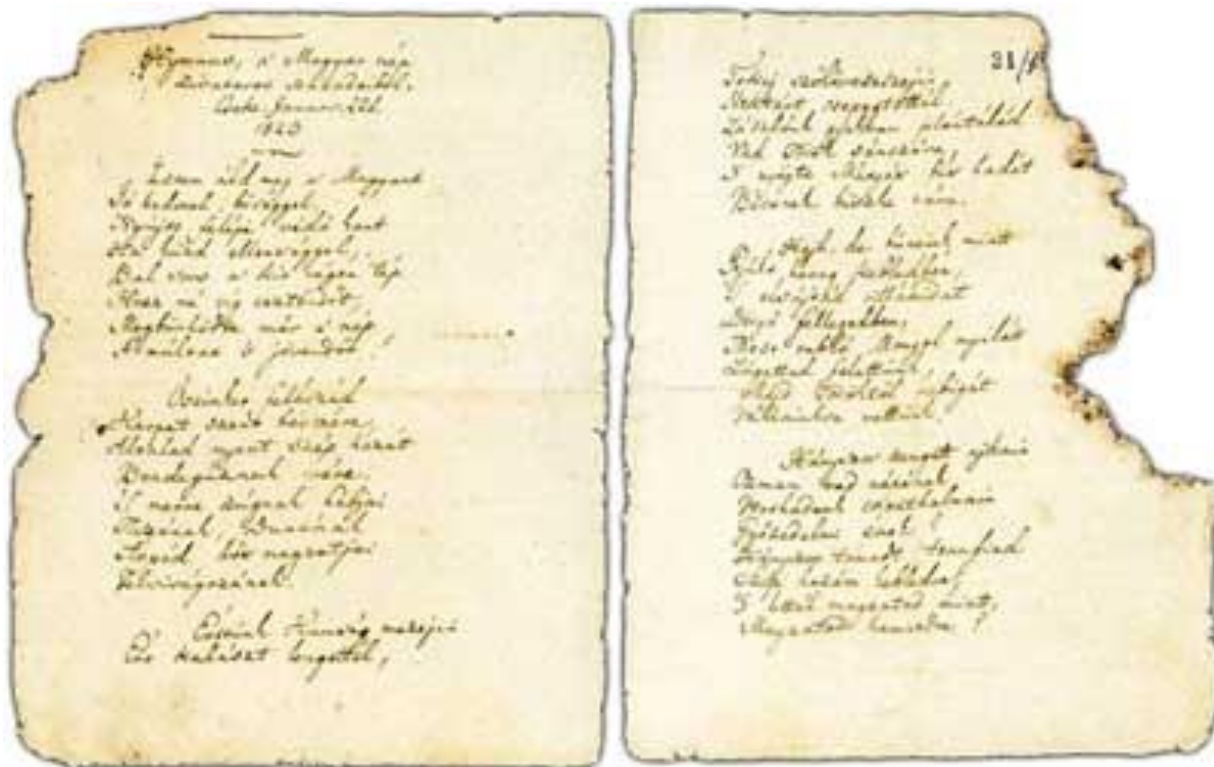 Hymnus, a' Magyar nép
zivataros századaiból.
Cseke Januar. 22d.
1823
Isten áldd meg a' Magyart
Jó kedvvel, bőséggel,
Nyújts feléje védő kart
Ha küzd ellenséggel;
Bal sors a' kit régen tép
Hozz rá víg esztendőt,
Megbűnhődte már e' nép
A' multat 's jövendőt!
Őseinket felhozád
Kárpát szent bérczére,
Általad nyert szép hazát
Bendegúznak vére,
'S merre zúgnak habjai
Tiszának, Dunának
Árpád hős magzatjai
Felvirágozának.
Értünk Kunság mezején
Ért kalászt lengettél,
31/
Tokaj szőlővesszein
Nektárt csepegtettél,
Zászlónk gyakran plántálád
Vad Török sánczára,
'S nyögte Mátyás bús hadát
Bécsnek büszke vára.
Hajh, de bűneink miatt
Gyúlt harag kebledben,
'S elsújtád villámidat
Dörgő fellegedben,
Most rabló Mongol nyilát
Zúgattad felettünk,
Majd Töröktől rabigát
Vállainkra vettünk.
Hányszor zengett ajkain
Ozman vad népének
csonthalmain
Győzedelmi ének!
Hányszor támadt tenfiad
Szép hazám kebledre,
'S lettél magzatod miatt,
Magzatod hamvedre?